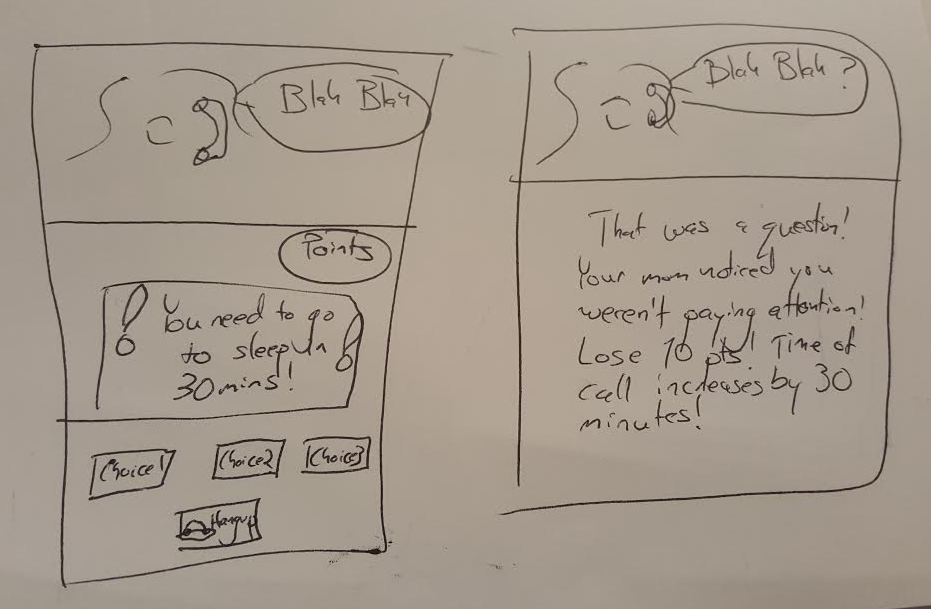 Blah Blah
Points
You need to go
to sleep in
30 mins!
Choice1
Choice2
Choice3
Hangup
Blah Blah?
That was a question!
Your mom noticed you
weren't paying attention!
Lose 10 pts! Time of
call increases by 30
minutes!